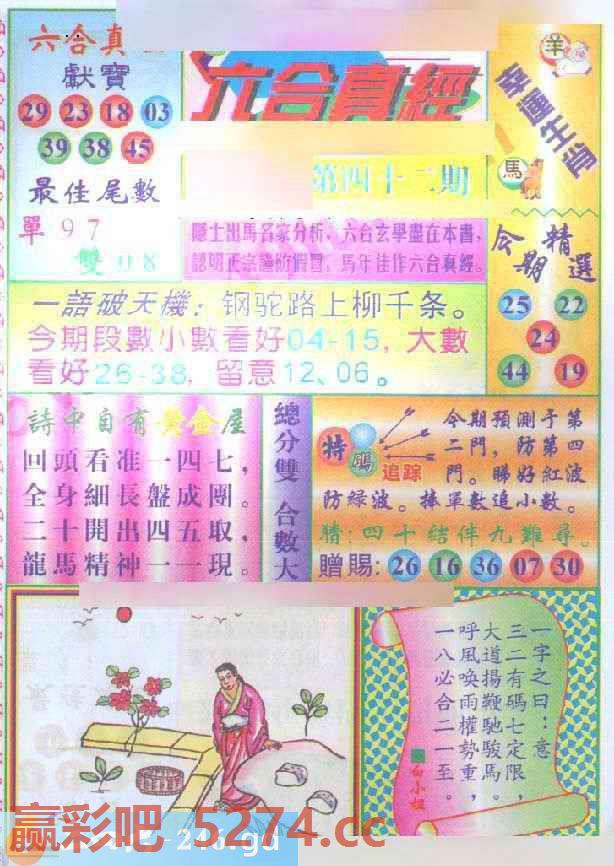 六合真
獻寶
29 23 18 03
39 38 45
最佳尾數
單 9 7
雙 0 8
六合真經
第四十二期
隱士出馬名家分析、六合玄學盡在本書、
認明正宗謹防假冒、馬年佳作六合真經。
羊
幸運生肖
馬
今期精選
25 22
24
44 19
一語破天機：钢驼路上柳千条。
今期段數小數看好04-15，大數
看好26-38，留意12、06。
詩中自有黃金屋
回頭看准一四七，
全身細長盤成團。
二十開出四五取，
龍馬精神一一現。
總分雙 合數大
特碼
追踪
今期預測予第
二門，防第四
門。睇好紅波
防綠波。捧單數追小數。
猜：四十结伴九難尋。
贈賜：26 16 36 07 30
一字之曰：意
三二有碼七定限，
大道揚鞭馳駿馬。
呼風喚雨權勢重，
一八必合二一至。
白小姐
赢彩吧 5274.cc
246.gd